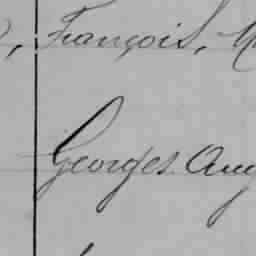 François,
Georges Aug